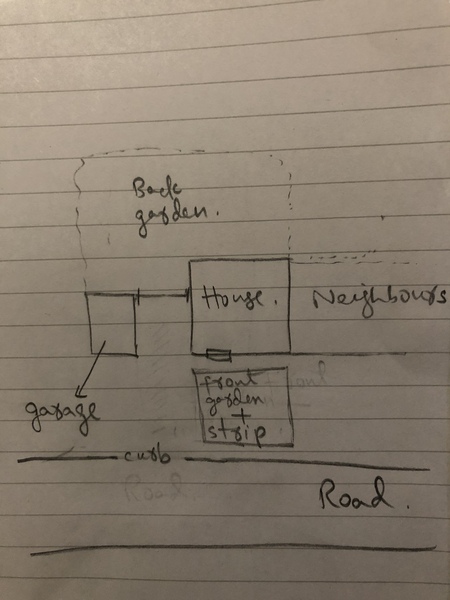 Back
garden.
House.
Neighbours
front
garden
+
strip
garage
curb
Road.
Road.